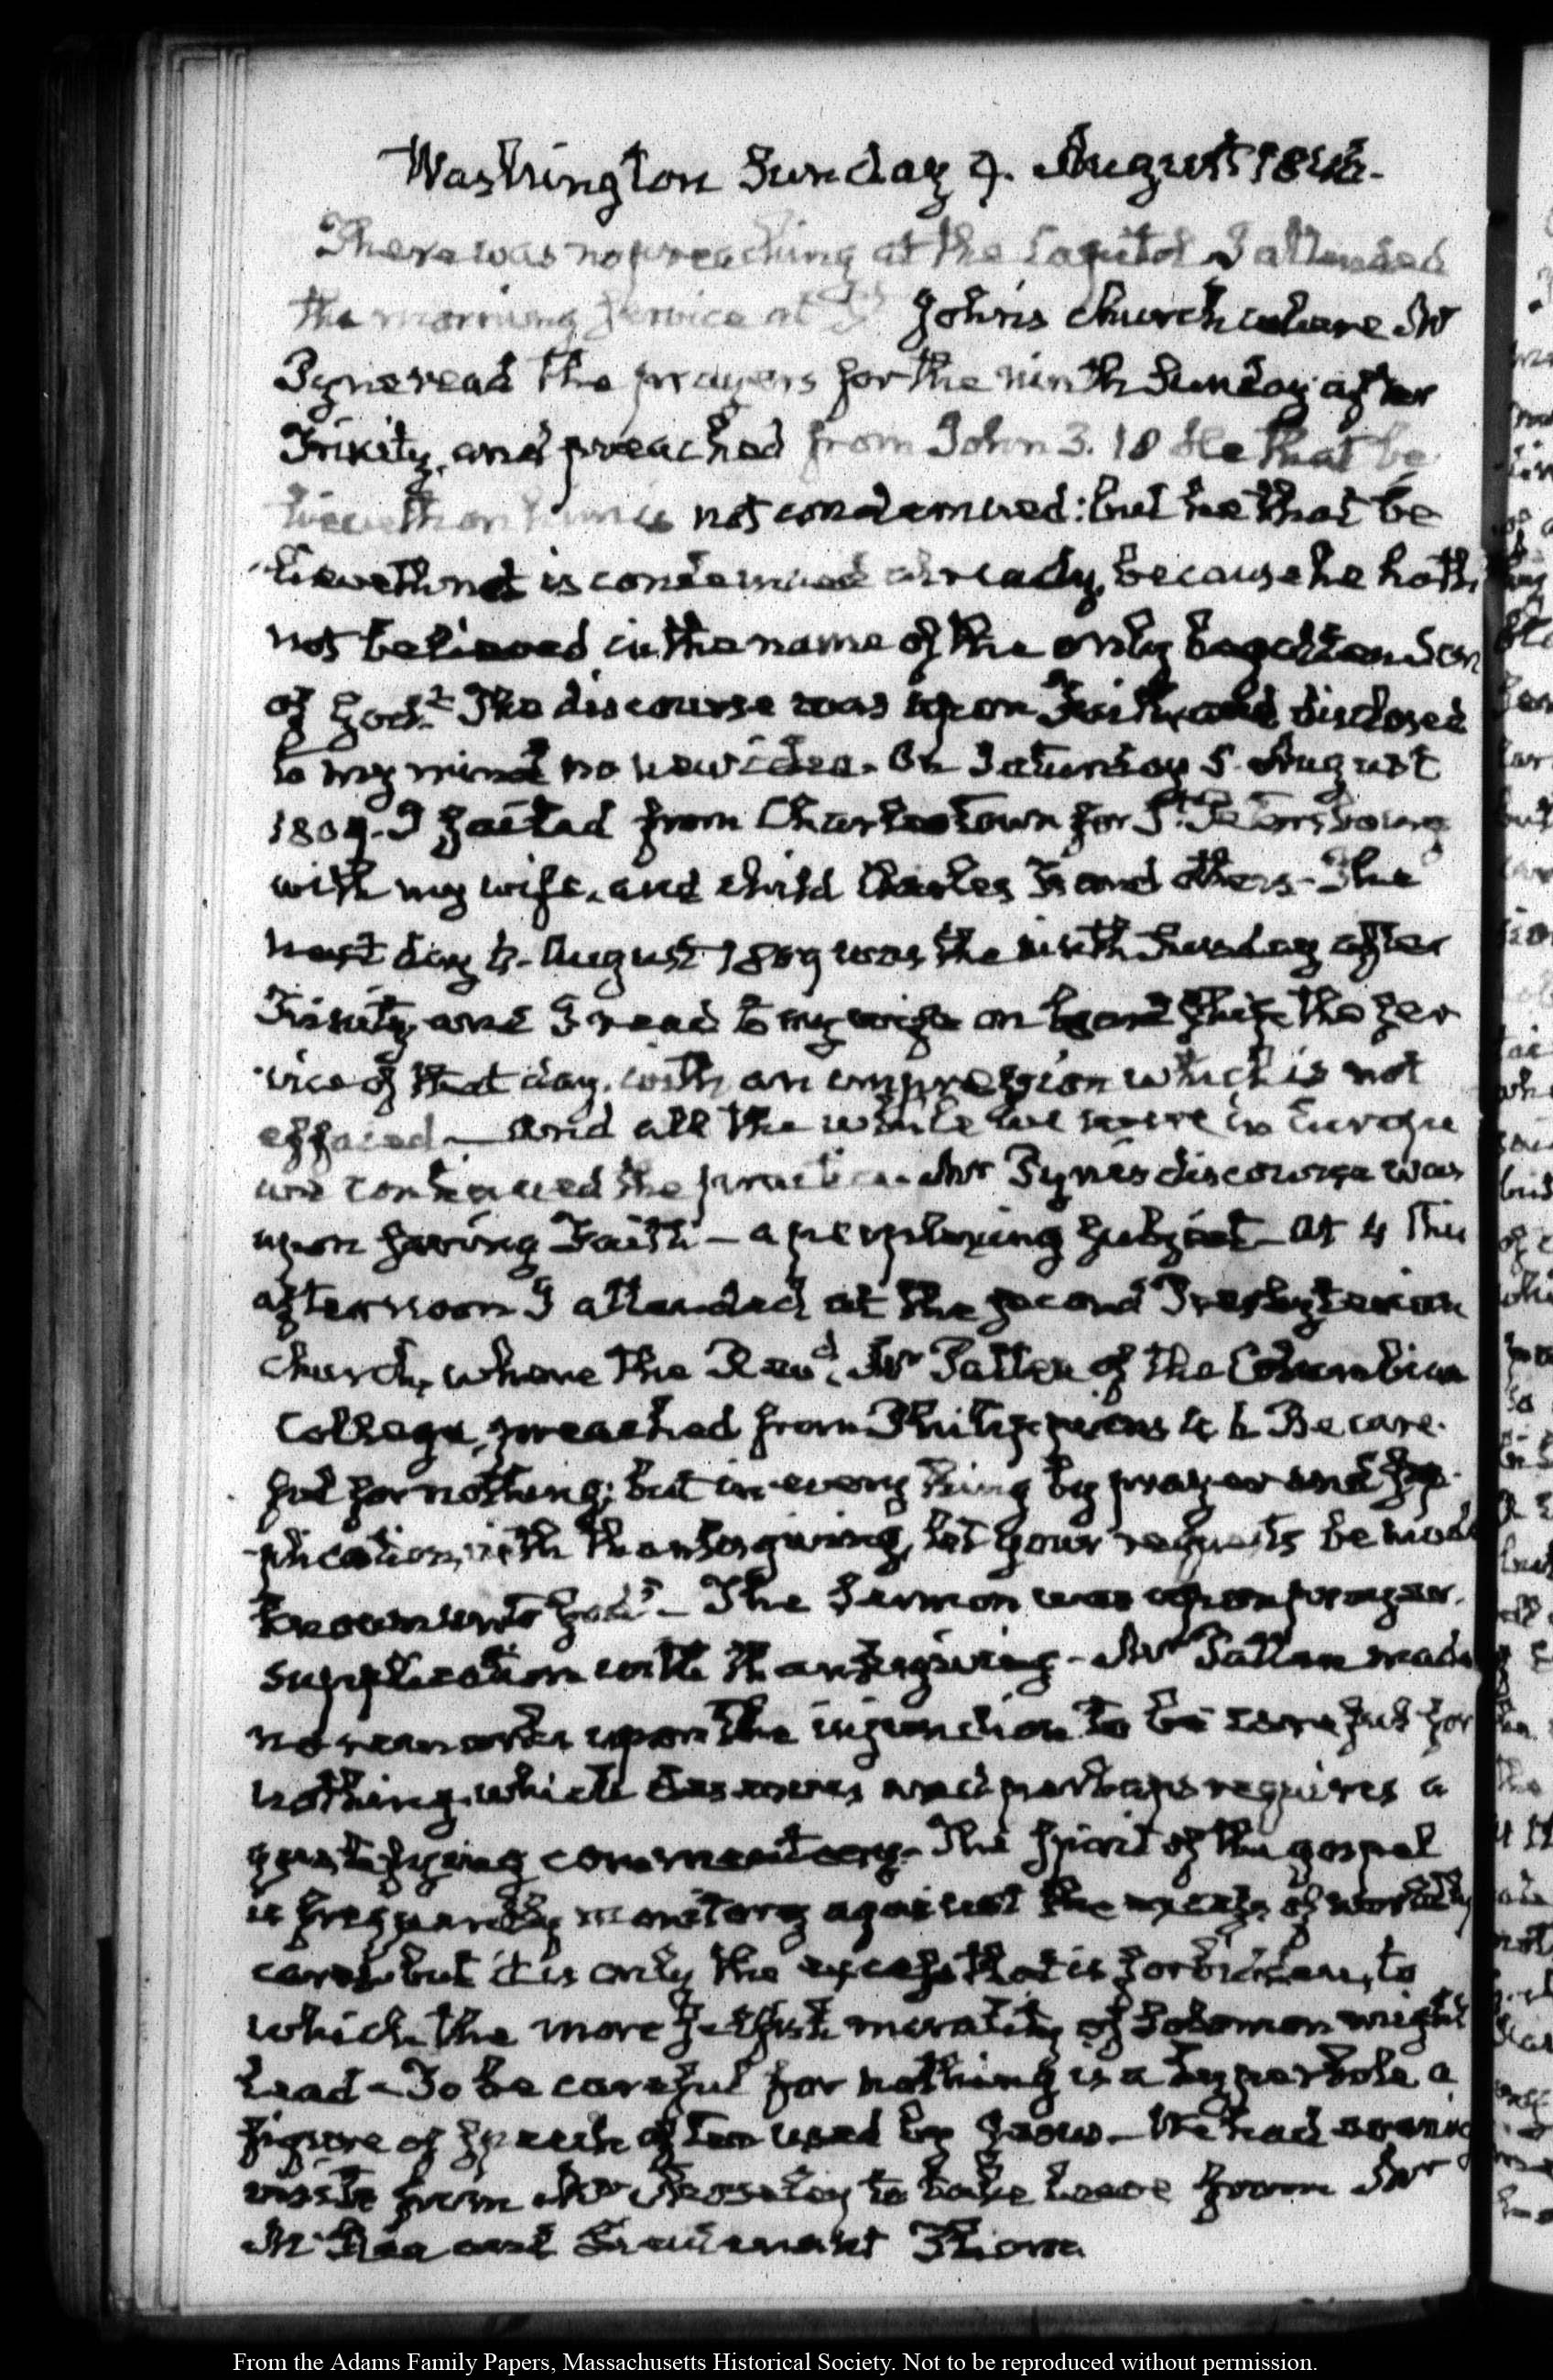 Washington Sunday 7. August 1842.
There was no preaching at the Capitol I attended
the morning service at St. John's church where Mr
Pyne read the prayers for the ninth Sunday after
Trinity, and preached from John 3. 18 He that be
lieveth on him is not condemned: but he that be
-lieveth not is condemned already, because he hath
not believed in the name of the only begotten Son
of God." The discourse was upon Faith, and disclosed
to my mind no new idea. On Saturday 5. August
1809. I sailed from Charlestown for St. Petersbourg
with my wife, and child Charles and others- The
next day 6. August 1809 was the Sunday after
Trinity, and I read to my wife on board ship the ser
-vice of that day, with an impression which is not
effaced — And all the while we were in Europe
we continued the practice. Mr Pyne's discourse was
upon saving Faith — a perplexing subject — At 4 this
afternoon I attended at the second Presbyterian
church, where the Revd. Mr of the Columbian
College, preached from Philippians 4. 6. Be care-
ful for nothing; but in every thing by prayer and sup-
-plication, with thanksgiving, let your requests be made
known unto God" — The Sermon was upon prayer,
supplication with thanksgiving - Mr made
no remarks upon the injunction to be careful for
nothing, which deserves and perhaps requires a
qualifying commentary. The spirit of the gospel
is frequently monitory against the excess of worldly
cares, but it is only the excess that is forbidden, to
which the more selfish morality of Solomon might
lead - To be careful for nothing is a hyperbole a
figure of speech often used by Jesus. — We had evening
visits from Mr to take leave from Mr
and Lieutenant
From the Adams Family Papers, Massachusetts Historical Society. Not to be reproduced without permission.